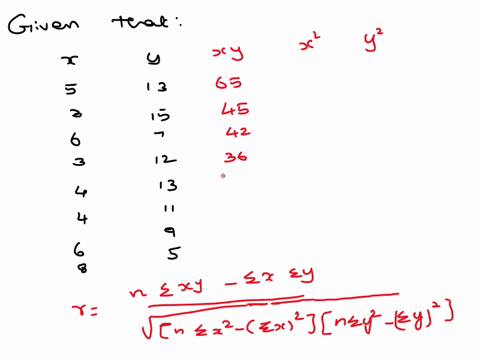 Given that:
x y xy x² y²
5 13 65
3 15 45
6 7 42
3 12 36
4 13
4 11
9
6 5
8
r = n Σxy - Σx Σy / √[n Σx² - (Σx)²] [nΣy² - (Σy)²]